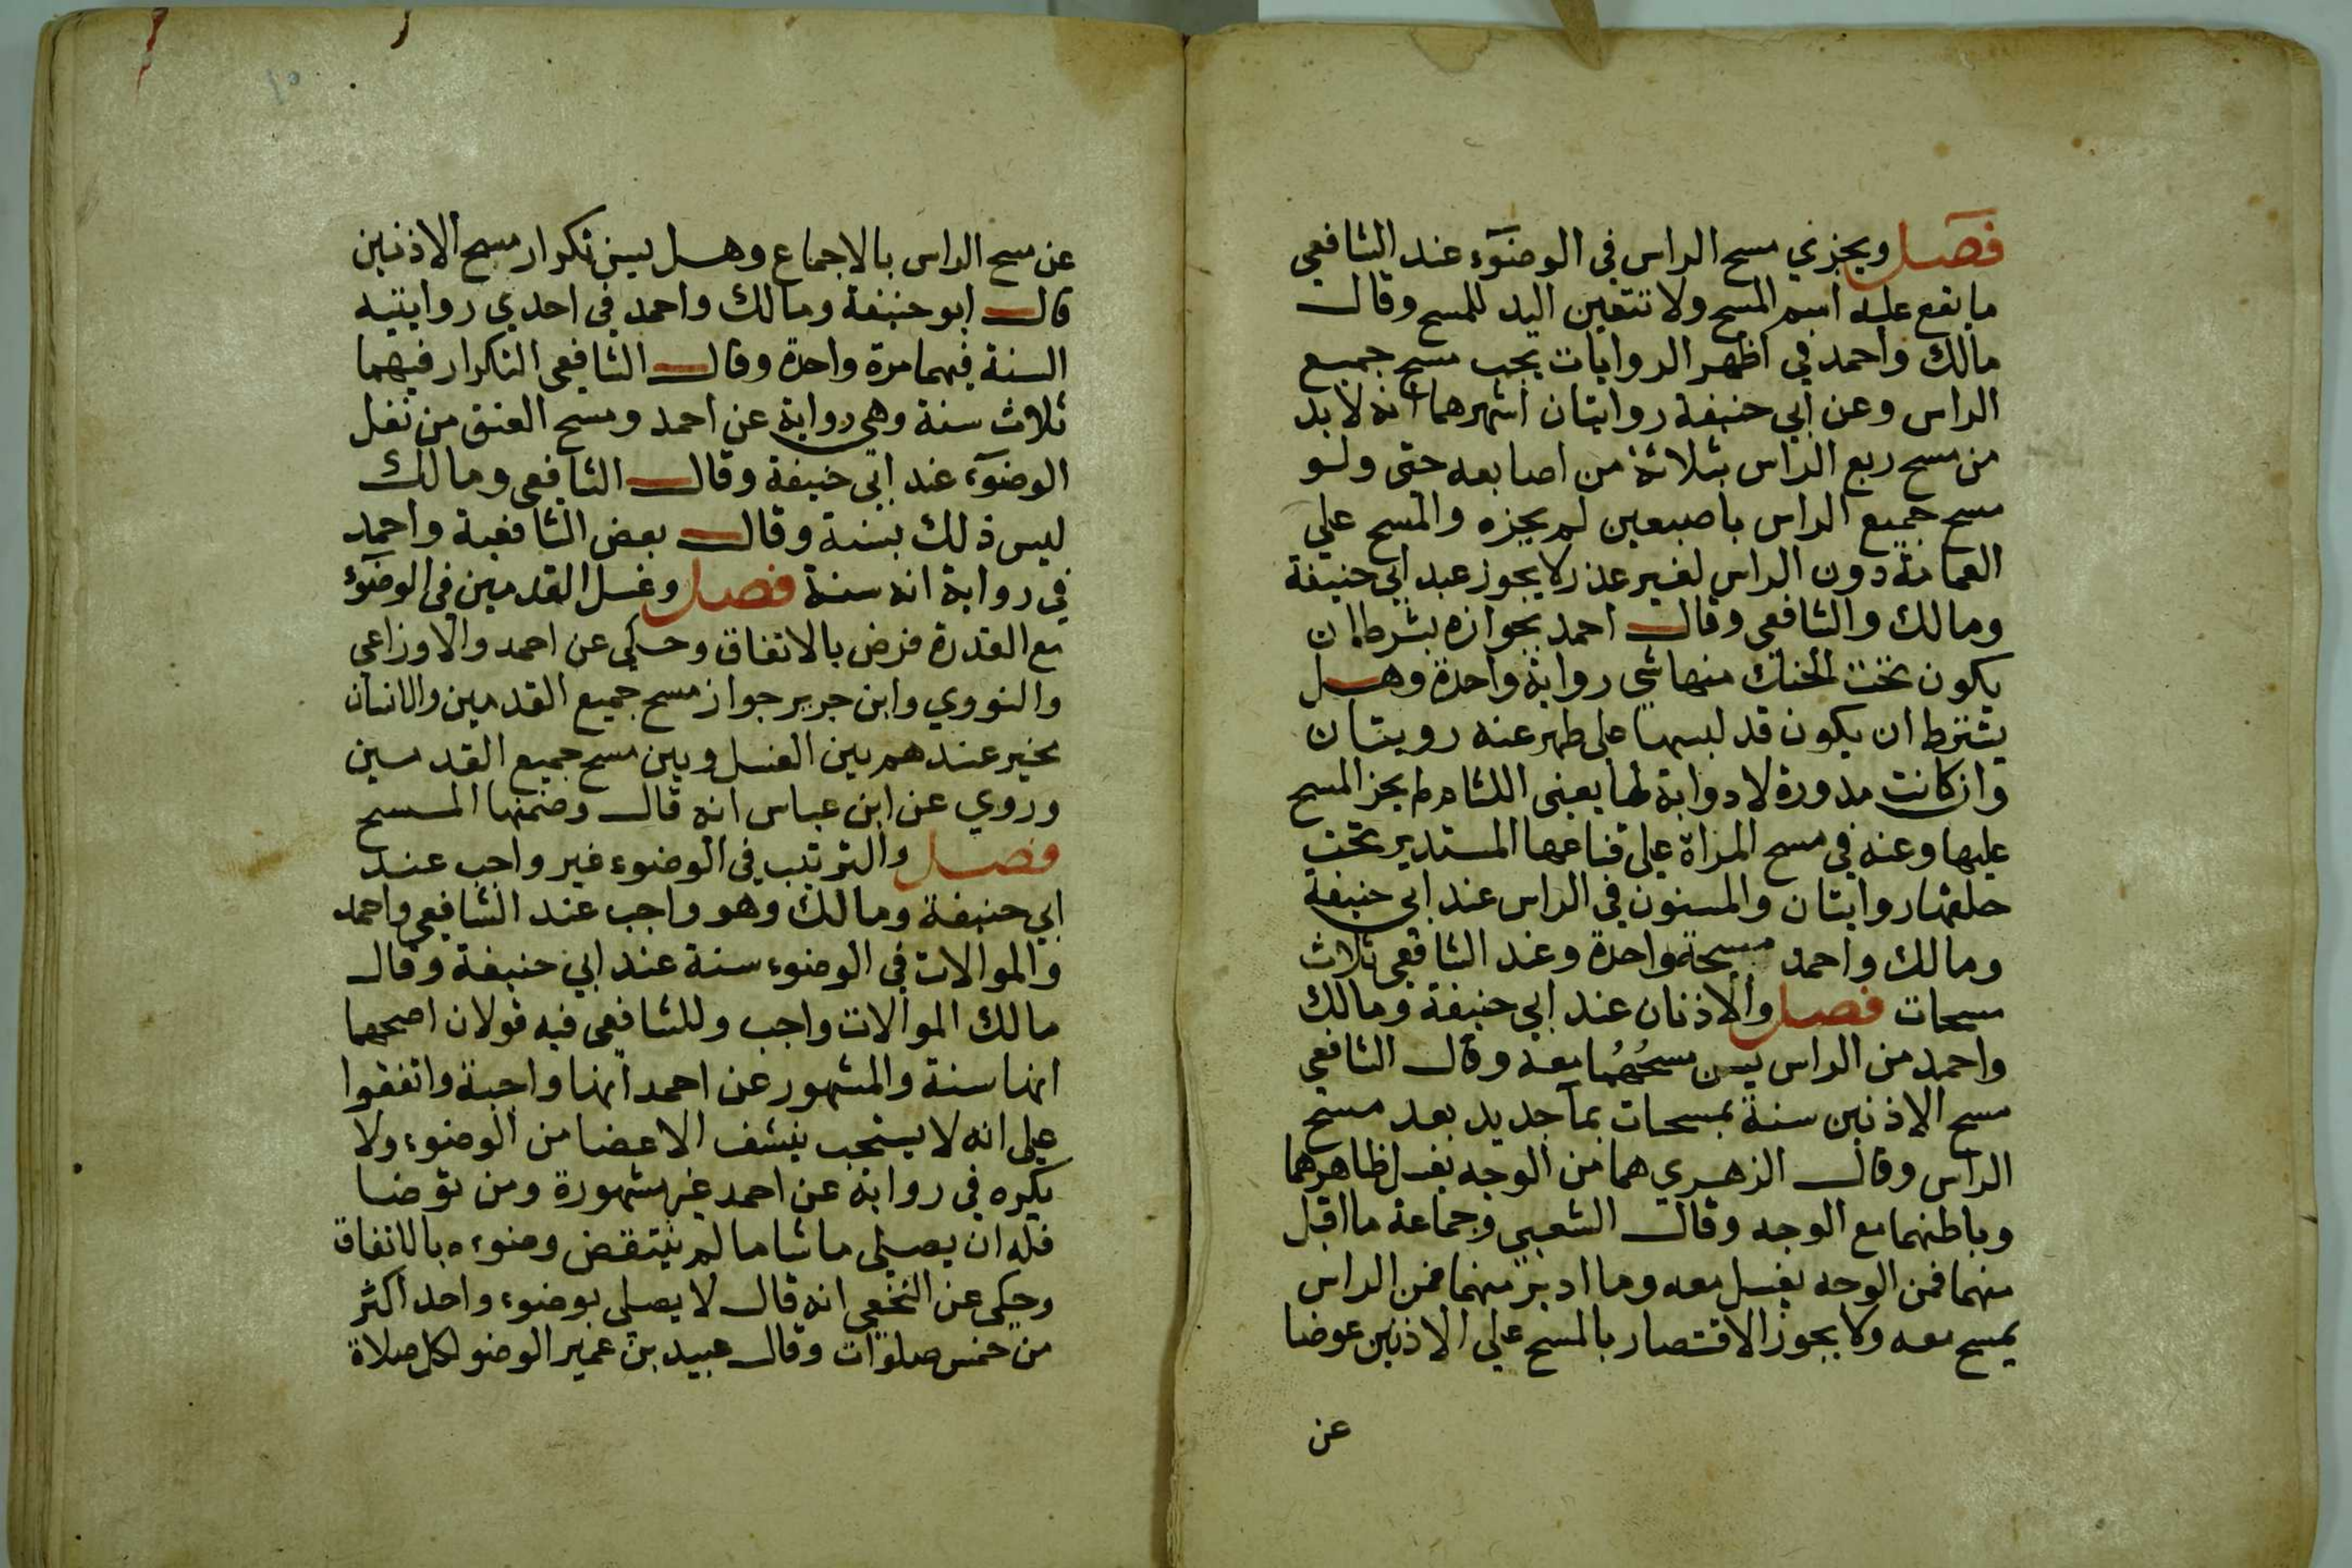 فصل ويجزي مسح الراس في الوضوٓء عند الشافعي
ما يقع عليه اسم المسح ولا تتعين اليد للمسح وقال
مالك وأحمد في اظهر الروايات يجب مسح جميع
الراس وعن ابي حنيفة روايتان اشهرهما انه لا بد
من مسح ربع الراس بثلاثة من اصابعه حتى ولو
مسح جميع الراس باصبعين لم يجزه والمسح علي
العمامة دون الراس لغير عذر لا يجوز عند ابي حنيفة
ومالك والشافعي وقال احمد بجوازه بشرط ان
يكون تحت الحنك منها شي رواية واحدة وهل
يشترط ان يكون قد لبسها على طهر عنه رويتان
وان كانت مدورة لا دوابة لها يعني اللثام لم يجز المسح
عليها وعنه في مسح المراة علي قناعها المستدير تحت
حلقها روايتان والمسنون في الراس عند ابي حنيفة
ومالك واحمد مسحة واحدة وعند الشافعي ثلاث
مسحات فصل والاذنان عند ابي حنيفة ومالك
واحمد من الراس يسن مسحُهُما معه وقال الشافعي
مسح الاذنين سنة بمسحات بمآ جديد بعد مسح
الراس وقال الزهري هما من الوجه يغسل ظاهرهما
وباطنهما مع الوجه وقال الشعبي وجماعة ما اقبل
منهما فمن الوجه يغسل معه وما ادبر منهما فمن الراس
يمسح معه ولا يجوز الاقتصار بالمسح علي الاذنين عوضا
عن
١٥
عن مسح الراس بالاجماع وهل يسن تكرار مسح الاذنين
قال ابو حنيفة ومالك واحمد في احدي روايتيه
السنة فيهما مرة واحدة وقال الشافعي التكرار فيهما
ثلاث سنة وهي رواية عن احمد ومسح العنق من نفل
الوضوٓء عند ابي حنيفة وقال الشافعي ومالك
ليس ذلك بسنة وقال بعض الشافعية واحمد
في رواية انه سنة فصل وغسل القدمين في الوضوٓء
مع القدرة فرض بالاتفاق وحكي عن احمد والاوزاعي
والنووي وابن جرير جواز مسح جميع القدمين والانسان
يخير عندهم بين الغسل وبين مسح جميع القدمين
وروي عن ابن عباس انه قال وضمنها المسح
فصل والترتيب في الوضوء غير واجب عند
ابي حنيفة ومالك وهو واجب عند الشافعي واحمد
والموالات في الوضوء سنة عند ابي حنيفة وقال
مالك الموالات واجب وللشافعي فيه قولان اصحهما
انها سنة والمشهور عن احمد انها واجبة واتفقوا
على انه لا يستحب ينشف الاعضا من الوضوء ولا
يكره في رواية عن احمد غير مشهورة ومن توضا
فله ان يصلي ما شا ما لم ينتقض وضوءه بالاتفاق
وحكى عن النخعي انه قال لا يصلي بوضوء واحد اكثر
من خمس صلوات وقال عبيد بن عمير الوضو لكل صلاة